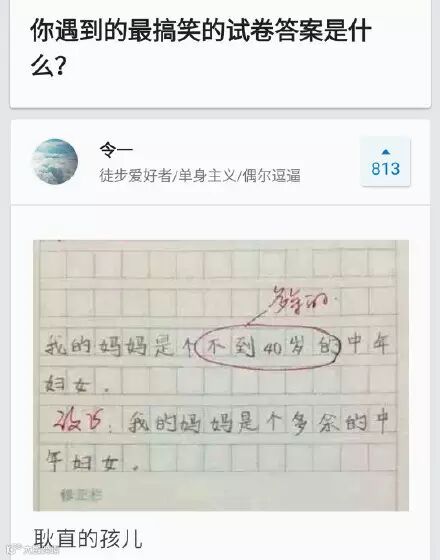 你遇到的最搞笑的试卷答案是什
么？
令一
徒步爱好者/单身主义/偶尔逗逼
813
多余的.
我的妈妈是个不到40岁的中年
妇女.
改巧:我的妈妈是个多余的中
年妇女.
修正栏
耿直的孩儿